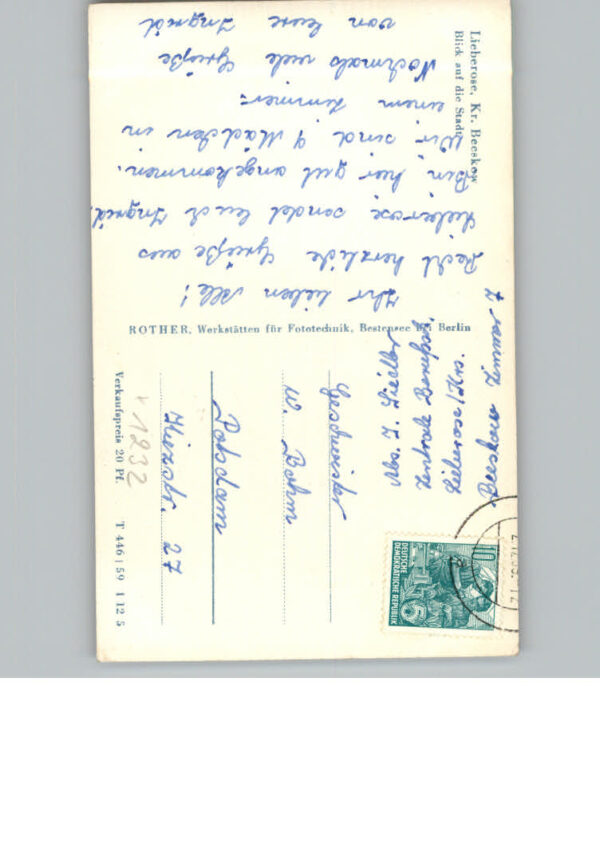 Lieberose, Kr. Beeskow
Blick auf die Stadt
Ihr lieben Alle!
Recht herzliche Grüße aus
Lieberose sendet Euch Ingrid.
Bin hier gut angekommen.
Wir sind 9 Mädchen in
einem Zimmer.
Nochmals viele Grüße
von Eurer Ingrid
ROTHER, Werkstätten für Fototechnik, Bestensee bei Berlin
Abs. I.
Zentrale Berufssch.
Lieberose/Krs.
Beeskow Zimmer 7
DEUTSCHE
DEMOKRATISCHE REPUBLIK
10
Geschwister
W. Böhm
Potsdam
27
1232
Verkaufspreis 20 Pf.
T 446 | 59 I 12 5